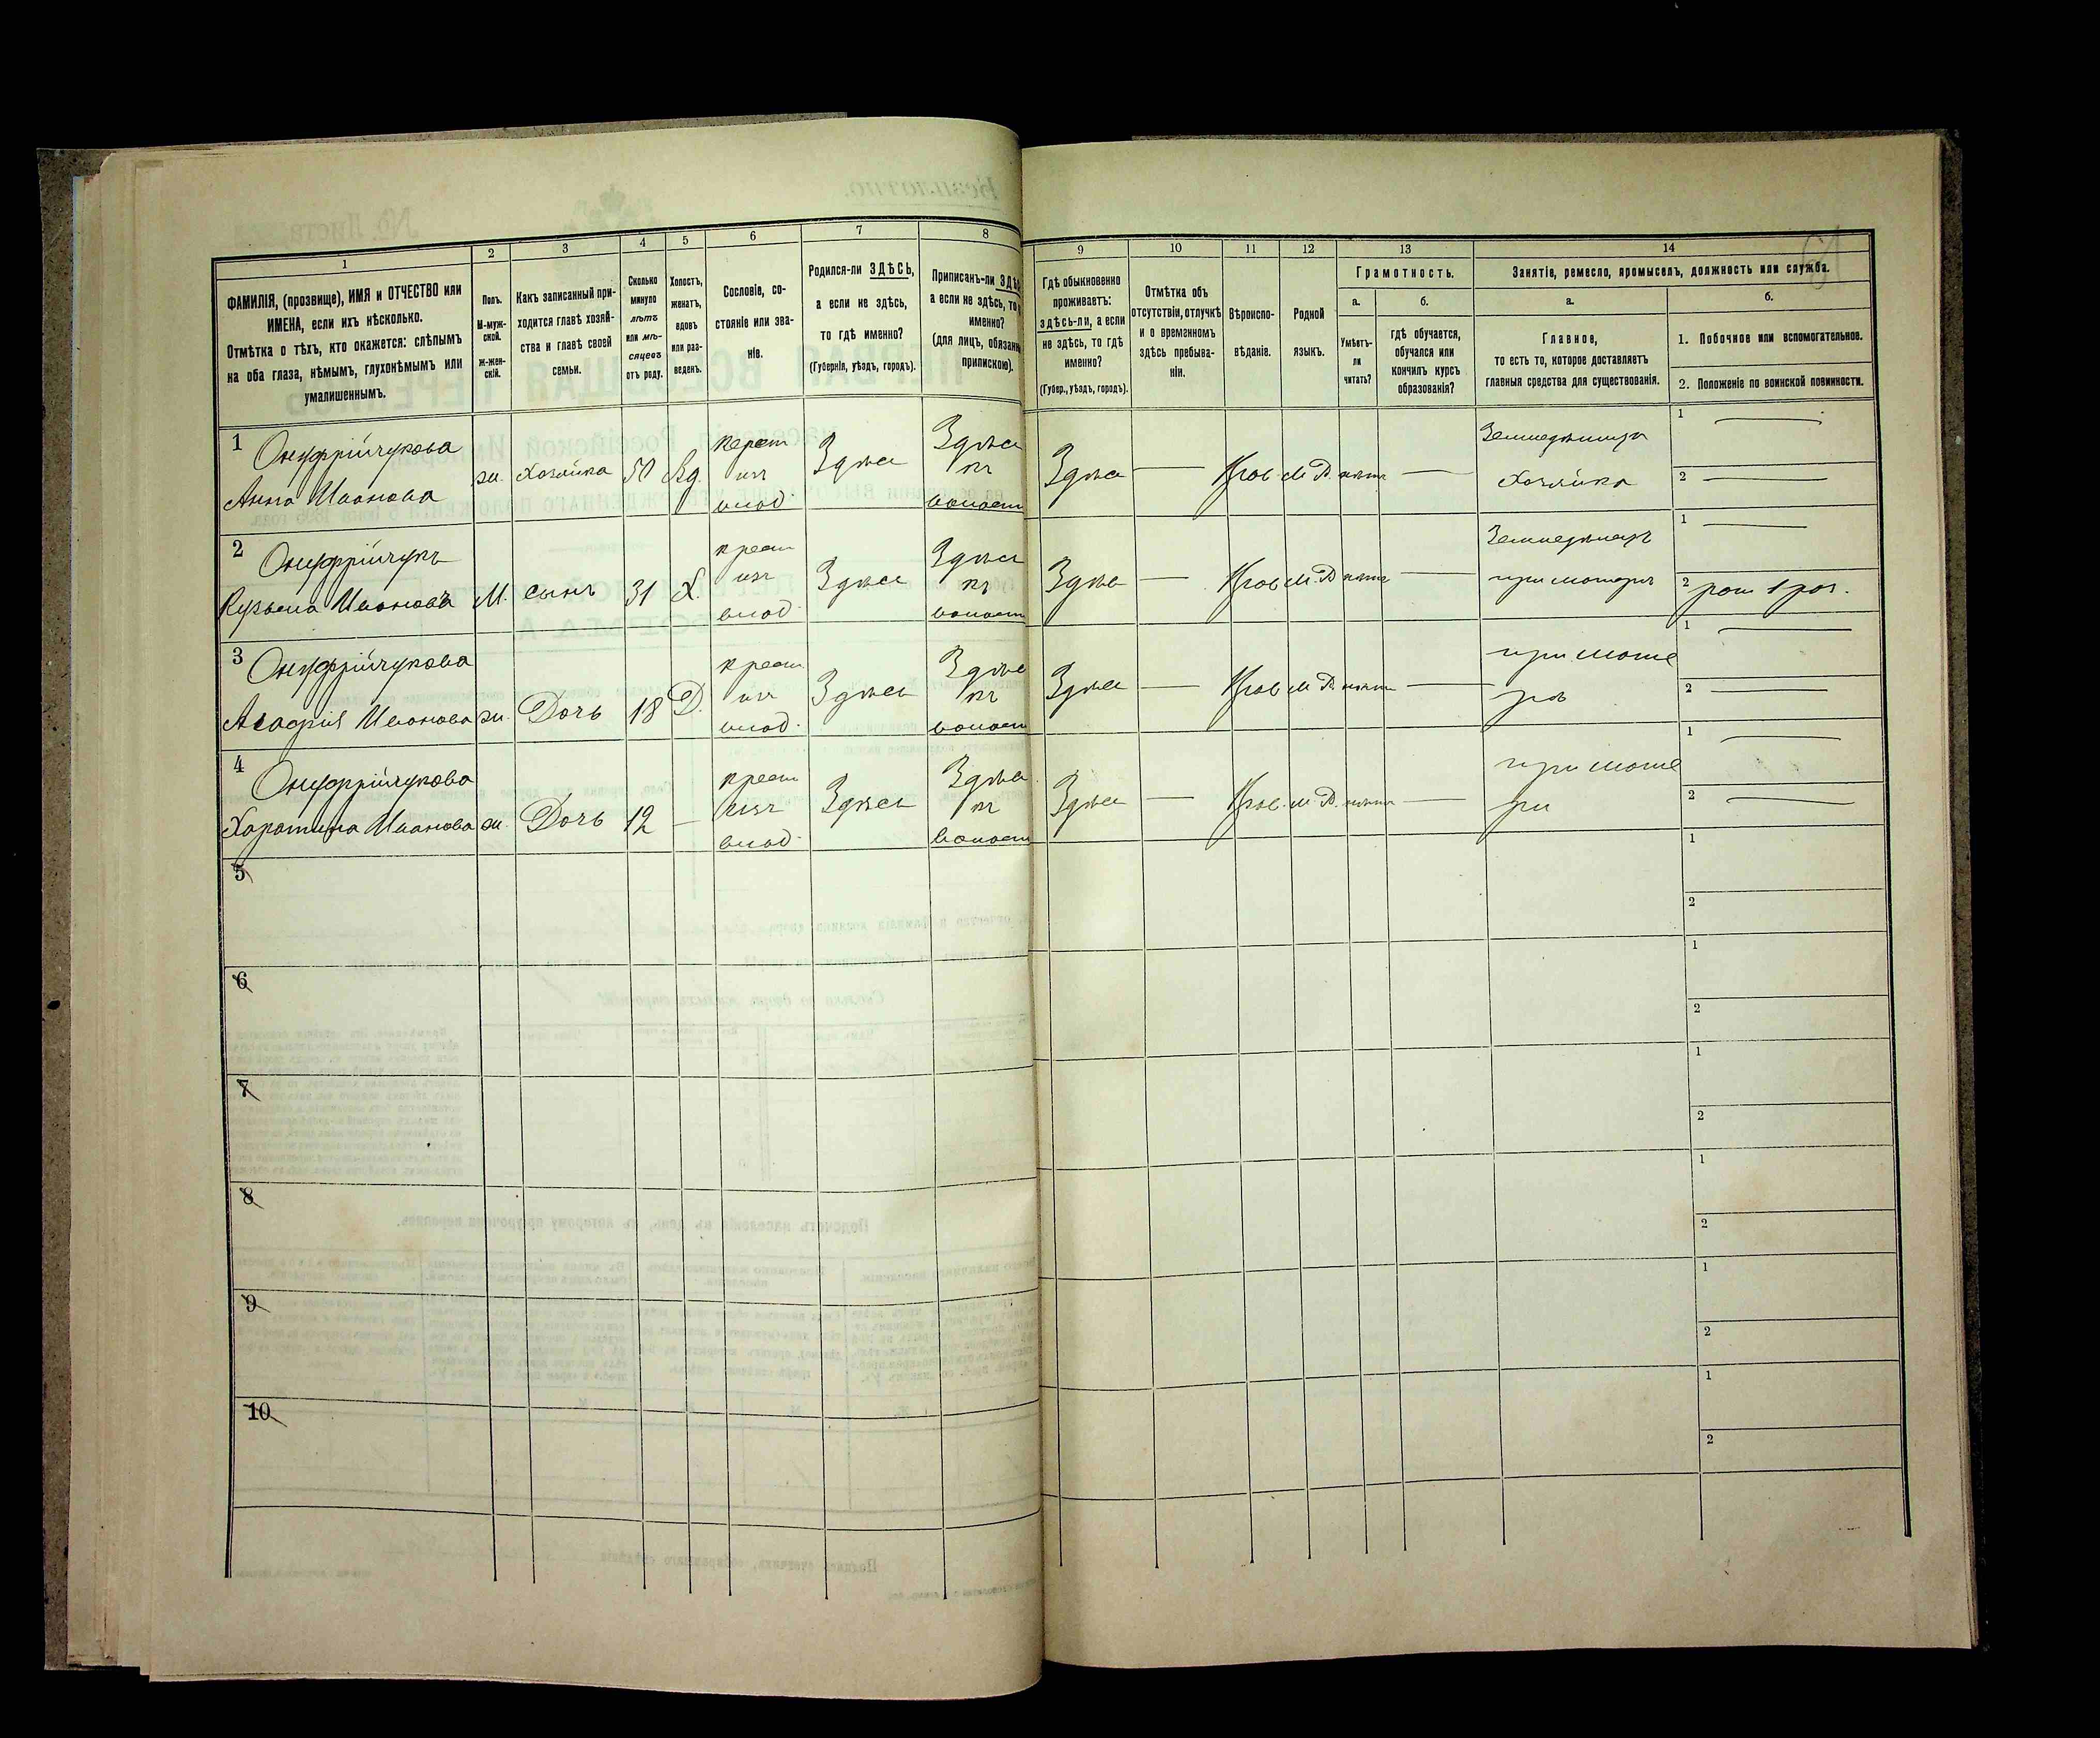 1
2
3
4
5
6
7
8
ФАМИЛІЯ, (прозвище), ИМЯ и ОТЧЕСТВО или
ИМЕНА, если ихъ нѣсколько.
Отмѣтка о тѣхъ, кто окажется: слѣпымъ
на оба глаза, нѣмымъ, глухонѣмымъ или
умалишеннымъ.
Полъ.
М-муж-
ской.
Ж-жен-
скій.
Какъ записанный при-
ходится главѣ хозяй-
ства и главѣ своей
семьи.
Сколько
минуло
лѣтъ
или мѣ-
сяцевъ
отъ роду.
Холостъ,
женатъ,
вдовъ
или раз-
веденъ.
Сословіе, со-
стояніе или зва-
ніе.
Родился-ли ЗДѢСЬ,
а если не здѣсь,
то гдѣ именно?
(Губернія, уѣздъ, городъ).
Приписанъ-ли
а если не здѣсь, то
именно?
(для лицъ,
припискою).
9
10
11
12
13
14
Гдѣ обыкновенно
проживаетъ:
здѣсь-ли, а если
не здѣсь, то гдѣ
именно?
(Губер., уѣздъ, городъ).
Отмѣтка объ
отсутствіи, отлучкѣ
и о временномъ
здѣсь пребыва-
ніи.
Вѣроиспо-
вѣданіе.
Родной
языкъ.
Грамотность.
а.
б.
Умѣетъ-
ли
читать?
гдѣ обучается,
обучался или
кончилъ курсъ
образованія?
Занятіе, ремесло, промыселъ, должность или служба.
а.
б.
Главное,
то есть то, которое доставляетъ
главныя средства для существованія.
1. Побочное или вспомогательное.
2. Положеніе по воинской повинности.
1 Онуфрійчукова
Анна Иванова
ж. Хозяйка 50 Вд.
крест
из
влад.
Здѣсь
Здѣсь
къ
волост
Здѣсь — Прав. М.Р. нѣтъ —
Хозяйка
1 —
2 —
2 Онуфрійчукъ
Кузьма Ивановъ
М. сынъ 31 Х.
крест
из
влад.
Здѣсь
Здѣсь
къ
волост
Здѣсь — Прав. М.Р. нѣтъ —
при матери
1 —
2
3 Онуфрійчукова
Агафія Иванова
ж. Дочь 18 Д.
крест
из
влад.
Здѣсь
Здѣсь
къ
волост
Здѣсь — Прав. М.Р. нѣтъ —
при мате
рѣ
1 —
2 —
4 Онуфрійчукова
Харатина Иванова
ж. Дочь 12 —
крест
из
влад.
Здѣсь
Здѣсь
къ
волост
Здѣсь — Прав. М.Р. нѣтъ —
при мате
ри
1 —
2 —
5
1
2
6
1
2
7
1
2
8
1
2
9
1
2
10
1
2